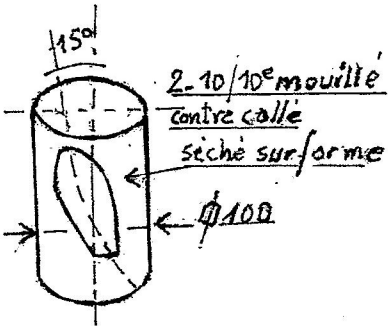 15°
2_10/10e mouillé
contre collé
séché sur forme
Φ100